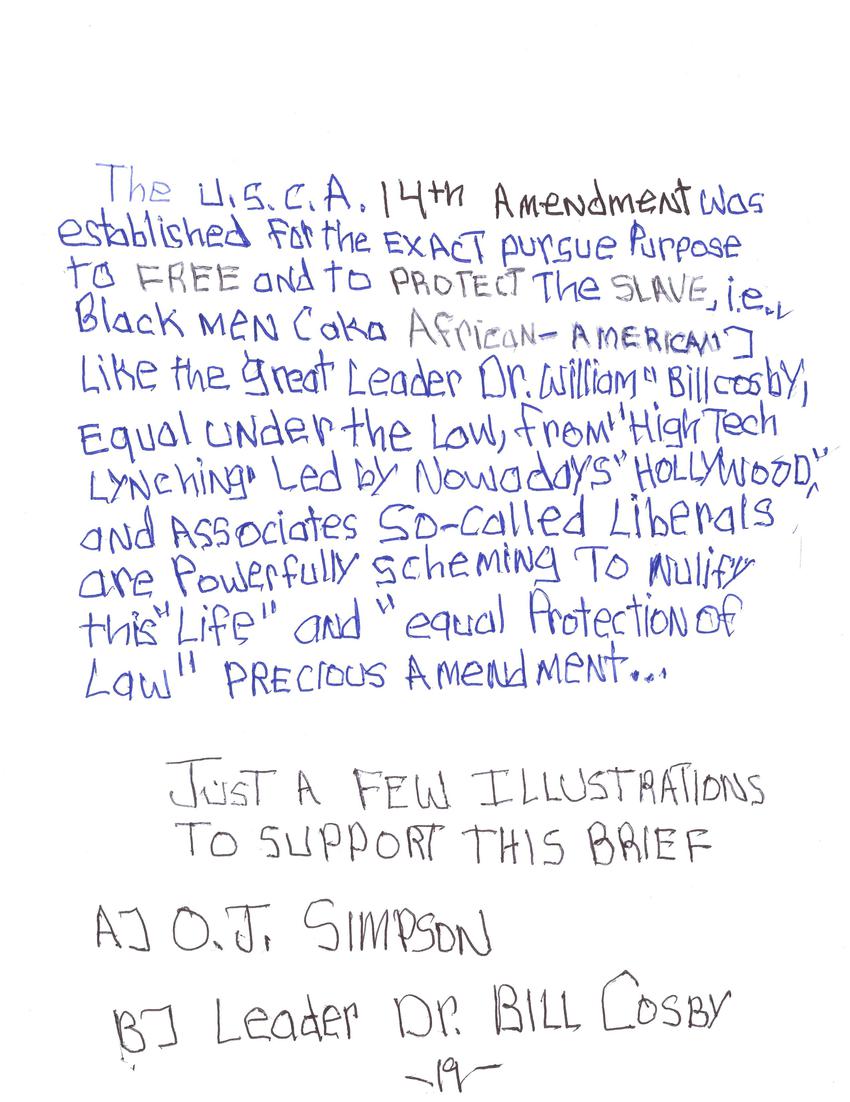 The U.S.C.A. 14th Amendment was
established for the EXACT pursue Purpose
to FREE and to PROTECT The SLAVE, i.e.,
Black MEN Caka African-AMERICAN]
Like the great Leader Dr. William "Bill cosby,
Equal under the Law, from "High Tech
LYNching" Led by Nowadays "HOLLYWOOD,"
and Associates So-called Liberals
are Powerfully scheming To Nulify
this "Life" and "equal Protection of
Law" PRECIOUS Amendment...
JUST A FEW ILLUSTRATIONS
TO SUPPORT THIS BRIEF
A] O.J. SIMPSON
B] Leader Dr. BILL COSBY
-19-